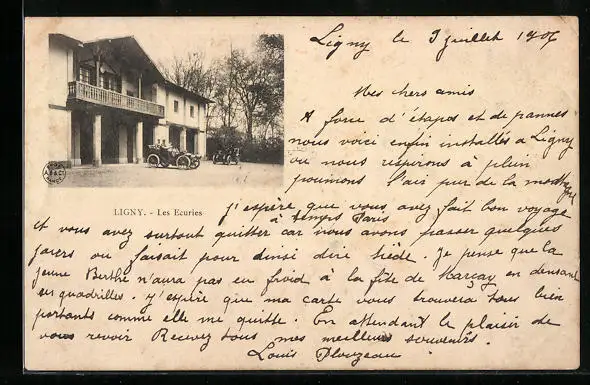 Ligny le 3 Juillet 1906
Mes chers amis
A force d'étapes et de pannes
nous voici enfin installés à Ligny
où nous respirons à plein
poumons l'air pur de la montagne
LIGNY. - Les Ecuries
J'espère que vous avez fait bon voyage
et vous avez surtout quitter à temps Paris car nous avons passer quelques
jours ou faisait pour ainsi dire tiède. Je pense que la
jeune Berthe n'aura pas eu froid à la fête de Marçay en dansant
en quadrilles. J'espère que ma carte vous trouvera tous bien
portants comme elle me quitte. En attendant le plaisir de
vous revoir Recevez tous mes meilleurs souvenirs.
Louis Plouzeau